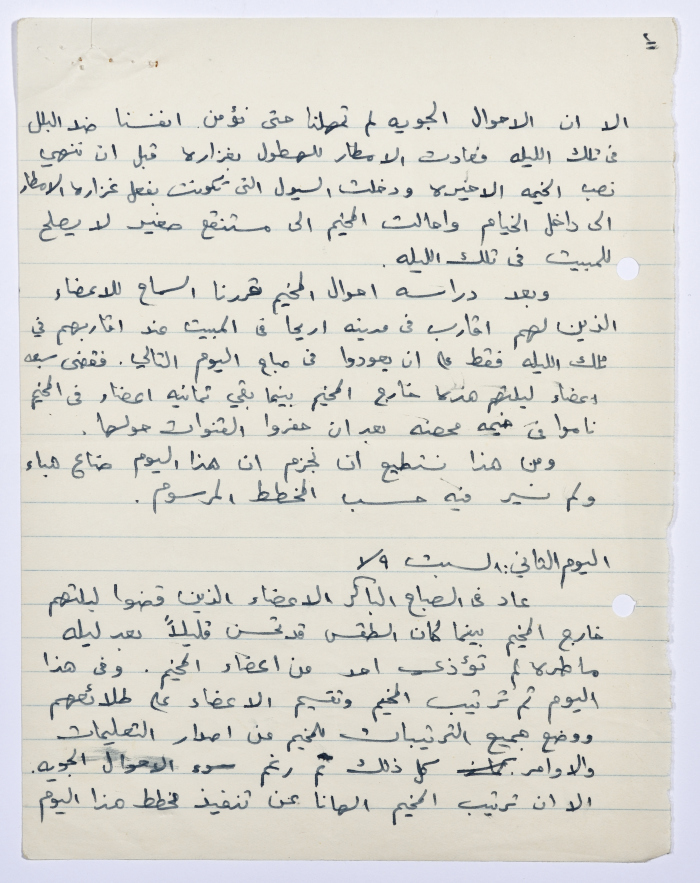 ٢
الا ان الاحوال الجويه لم تمهلنا حتى نؤمن انفسنا ضد البلل
فى تلك الليله فعادت الامطار للهطول بغزاره قبل ان ننهي
نصب الخيمه الاخيره ودخلت السيول التى تكونت بفعل غزارة الامطار
الى داخل الخيام واحالت المخيم الى مستنقع صغير لا يصلح
للمبيت فى تلك الليله .
وبعد دراسه احوال المخيم قررنا السماح للاعضاء
الذين لهم اقارب فى مدينه اريحا فى المبيت عند اقاربهم في
تلك الليله فقط على ان يعودوا فى صباح اليوم التالي . فقضى سبعه
اعضاء ليلتهم هذه خارج المخيم بينما بقي ثمانيه اعضاء فى المخيم
ناموا فى خيمه محصنه بعد ان حفروا القنوات حولها .
ومن هذا نستطيع ان نجزم ان هذا اليوم ضاع هباء
ولم نسير فيه حسب المخطط المرسوم .
اليوم الثاني : السبت ١/٩
عاد فى الصباح الباكر الاعضاء الذين قضوا ليلتهم
خارج المخيم بينما كان الطقس قد تحسن قليلاً بعد ليله
ماطره لم تؤذي احد من اعضاء المخيم . وفى هذا
اليوم تم ترتيب المخيم وتقسيم الاعضاء على طلائعهم
ووضع جميع الترتيبات للمخيم من اصدار التعليمات
والاوامر . كل ذلك تم رغم سوء الاحوال الجويه .
الا ان ترتيب المخيم الهانا عن تنفيذ مخطط هذا اليوم